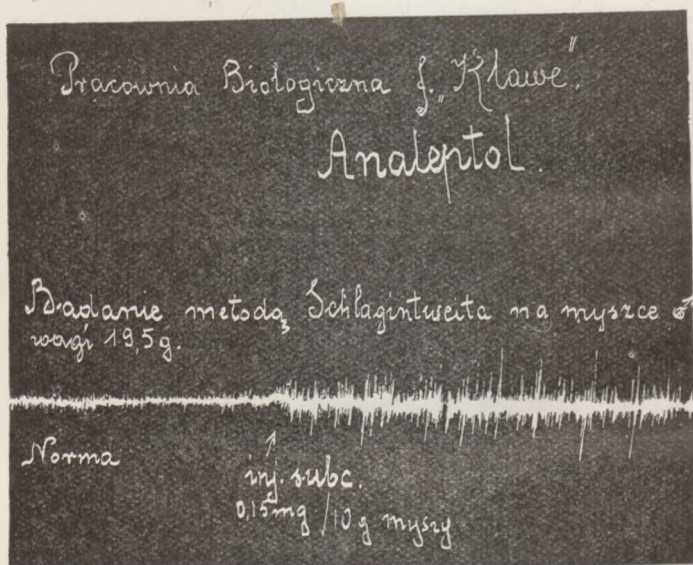 Pracownia Biologiczna f. „Klawe”.
Analeptol.
Badanie metodą Schlagintweita na myszce ♂
wagi 19,5g.
Norma
inj. subc.
0,15mg/10g myszy